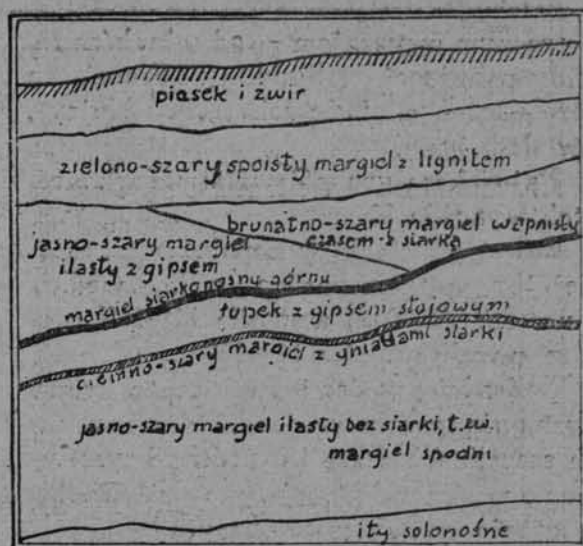 piasek i żwir
zielono-szary spoisty margiel z lignitem
brunatno-szary margiel wapnisty
czasem z siarką
jasno-szary margiel
ilasty z gipsem
margiel siarkonośny górny
łupek z gipsem słojowym
ciemno-szary margiel z gniazdami siarki
jasno-szary margiel ilasty bez siarki, t.zw.
margiel spodni
iły solonośne